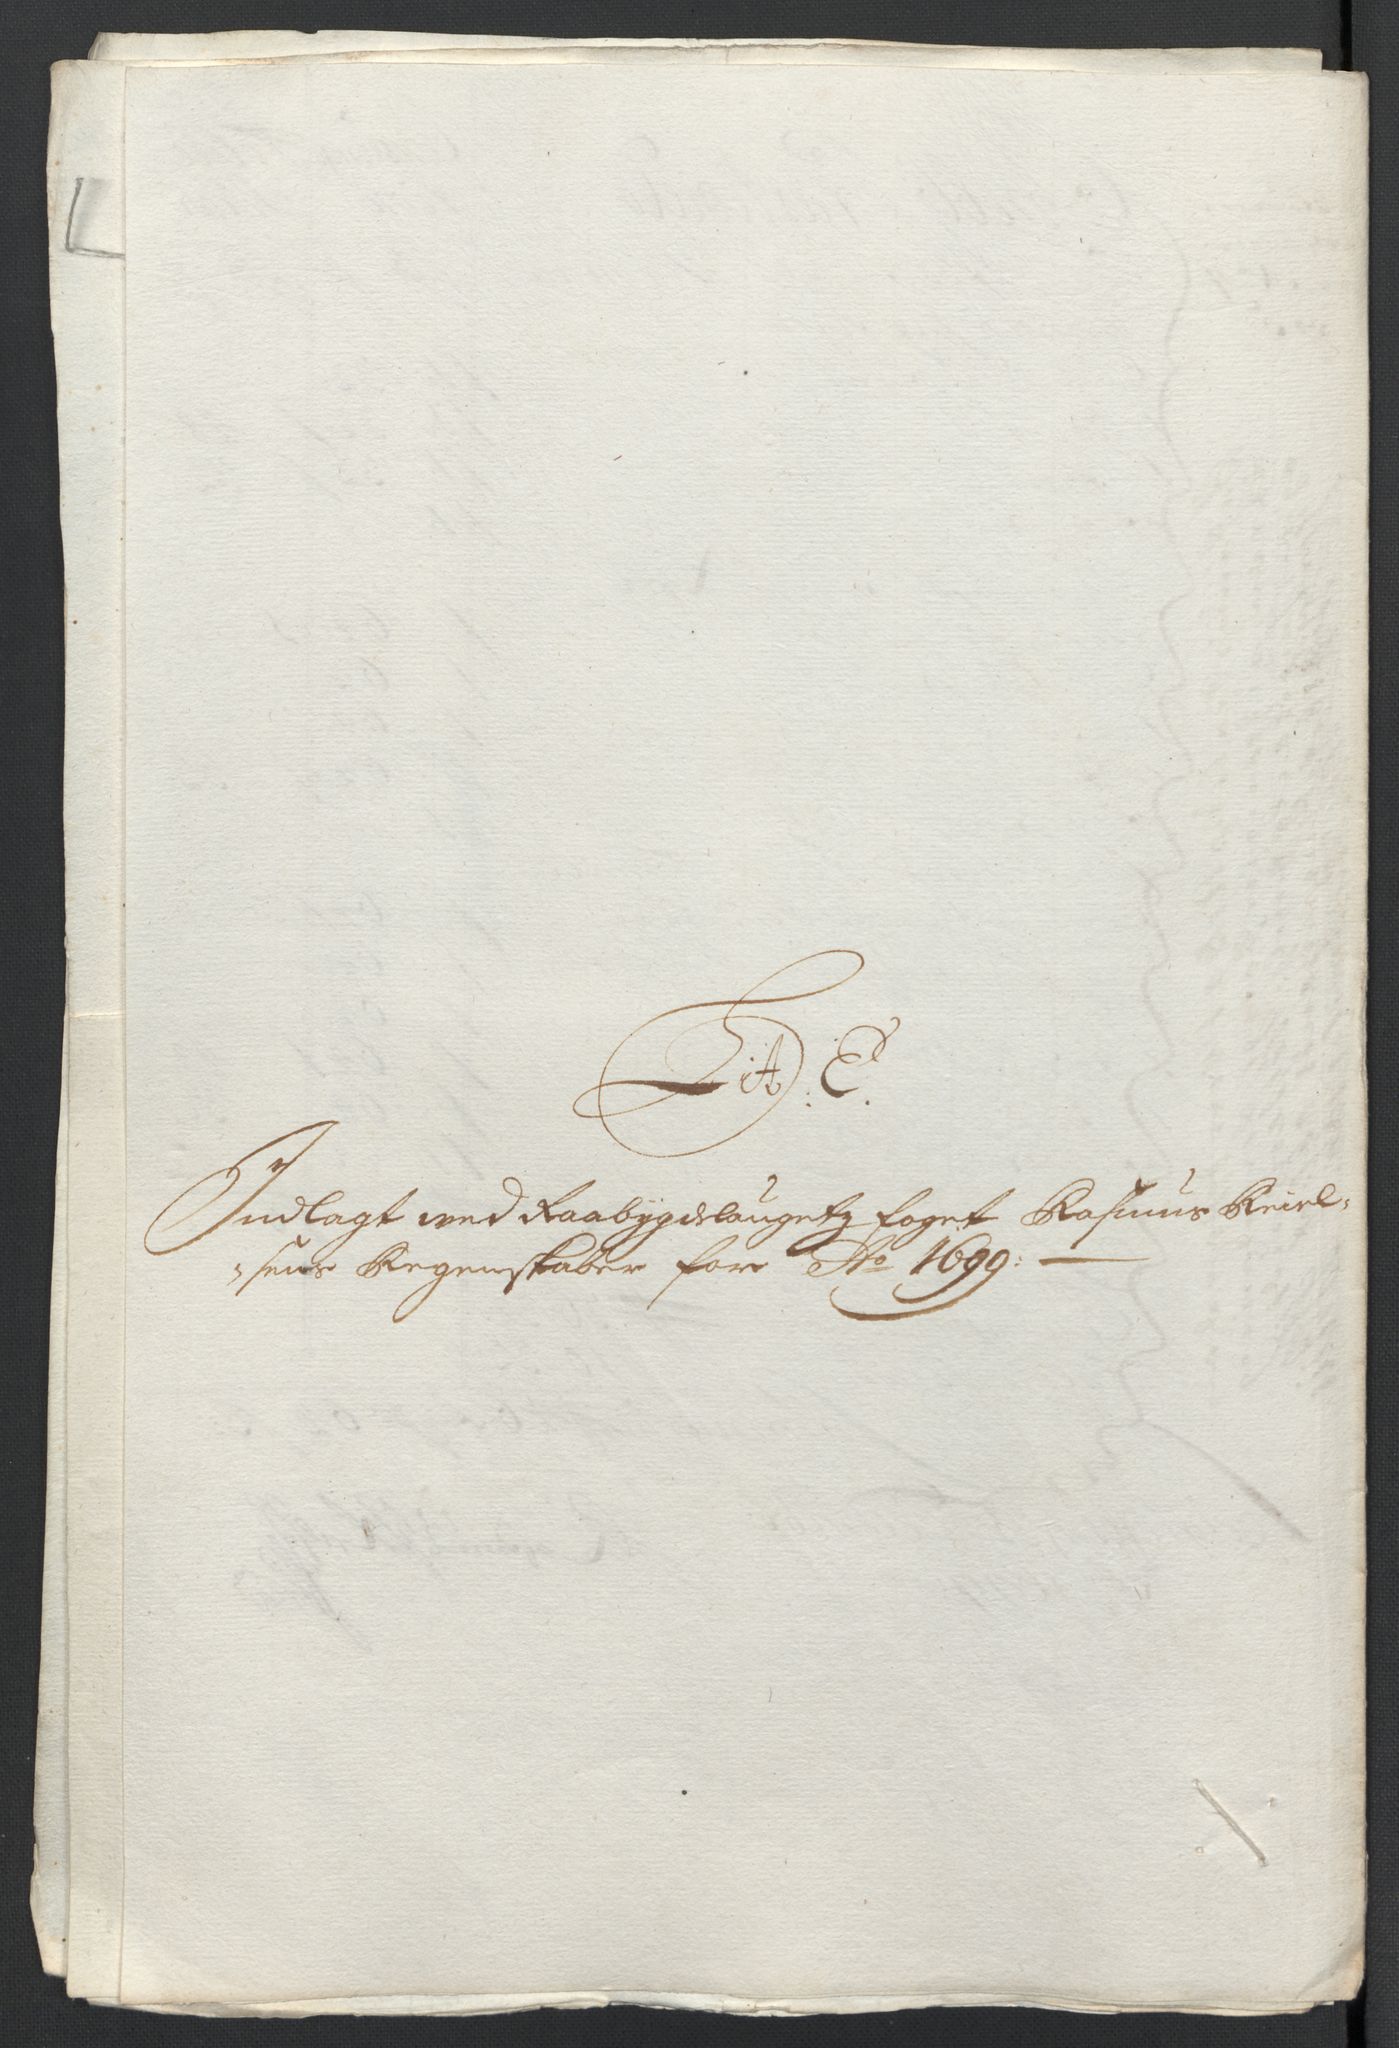 Lit: E.
Indlagt wed Raabygdelaugetz foget Rasmus Keiel-
-sens Regenskaber for Ao 1699: